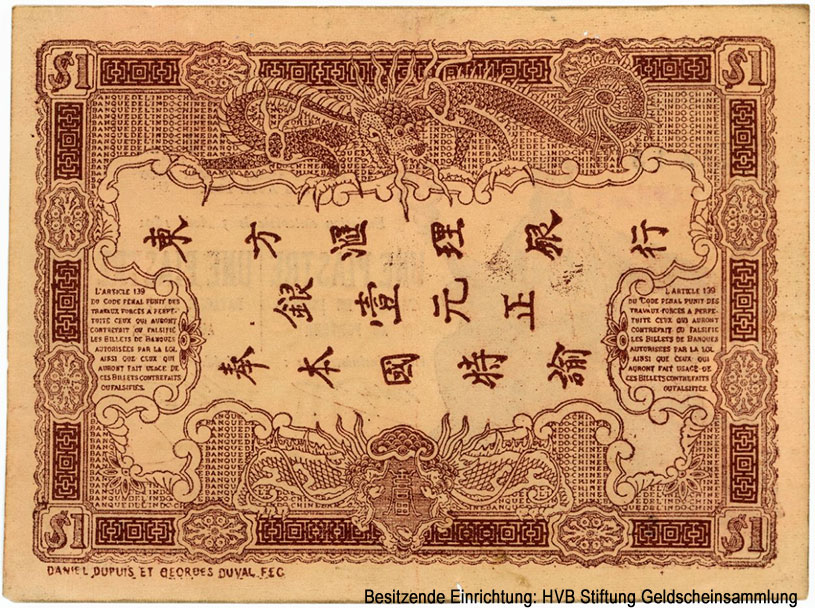 $1
$1
東方滙理銀行
銀壹元正
奉本國特諭
L'ARTICLE 139
DU CODE PÉNAL PUNIT DES
TRAVAUX FORCÉS A PERPÉ-
TUITÉ CEUX QUI AURONT
CONTREFAIT OU FALSIFIÉ
LES BILLETS DE BANQUES
AUTORISÉES PAR LA LOI,
AINSI QUE CEUX QUI
AURONT FAIT USAGE DE
CES BILLETS CONTREFAITS
OU FALSIFIÉS.
L'ARTICLE 139
DU CODE PÉNAL PUNIT DES
TRAVAUX FORCÉS A PERPÉ-
TUITÉ CEUX QUI AURONT
CONTREFAIT OU FALSIFIÉ
LES BILLETS DE BANQUES
AUTORISÉES PAR LA LOI,
AINSI QUE CEUX QUI
AURONT FAIT USAGE DE
CES BILLETS CONTREFAITS
OU FALSIFIÉS.
$1
$1
DANIEL DUPUIS ET GEORGES DUVAL FEC
Besitzende Einrichtung: HVB Stiftung Geldscheinsammlung